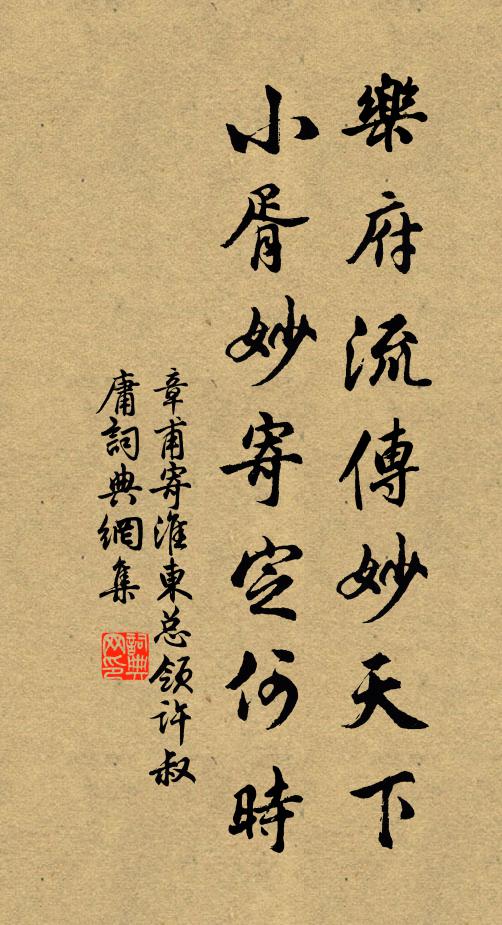 樂府流傳妙天下
小胥妙寄定何時
章甫寄淮東总領許叔
庸詞典網集
詞典
网印